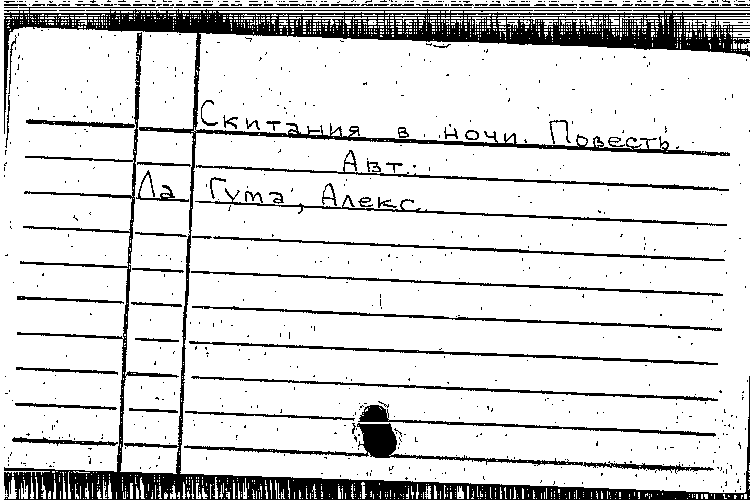 Скитания в ночи. Повесть.
Авт.:
Ла Гума, Алекс.